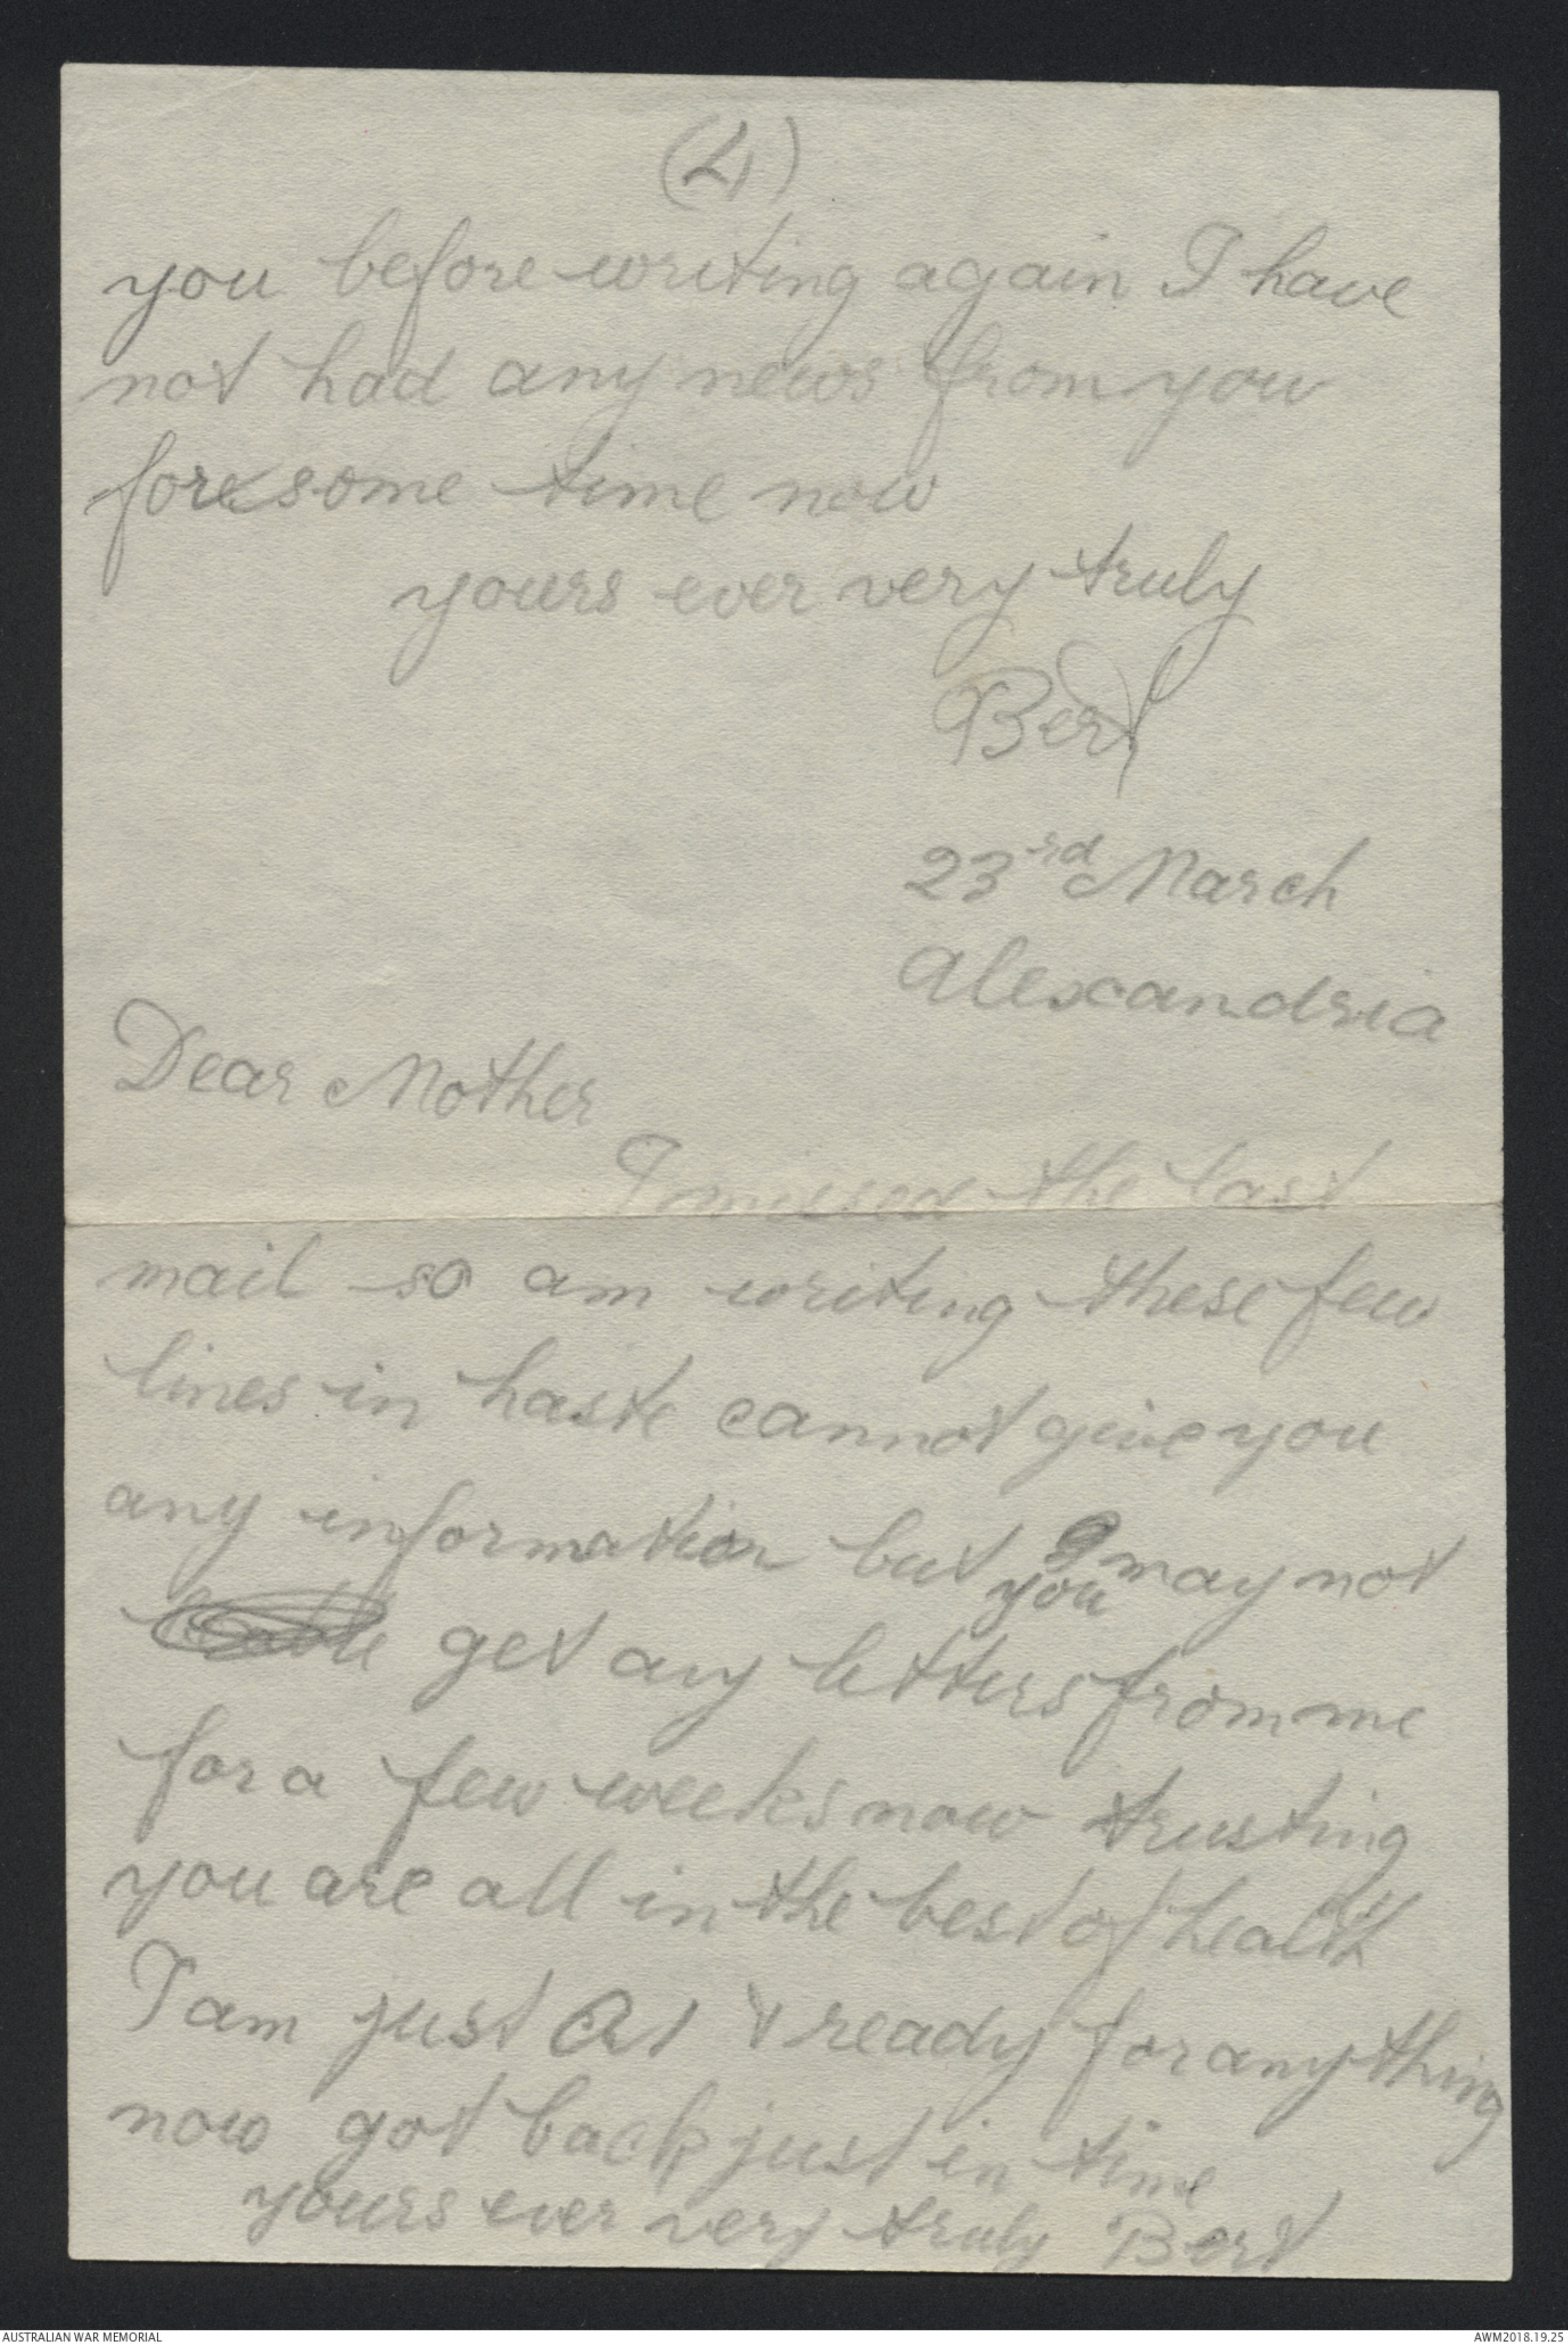 (4)
you before writing again I have
not had any news from you
for some time now
yours ever very truly
Bert
23rd March
Alexandria
Dear Mother
I missed the last
mail so am writing these few
lines in haste cannot give you
any information but you may not
get any letters from me
for a few weeks now trusting
you are all in the best of health
I am just A1 & ready for anything
now got back just in time
yours ever very truly Bert
AUSTRALIAN WAR MEMORIAL
AWM2018.19.25